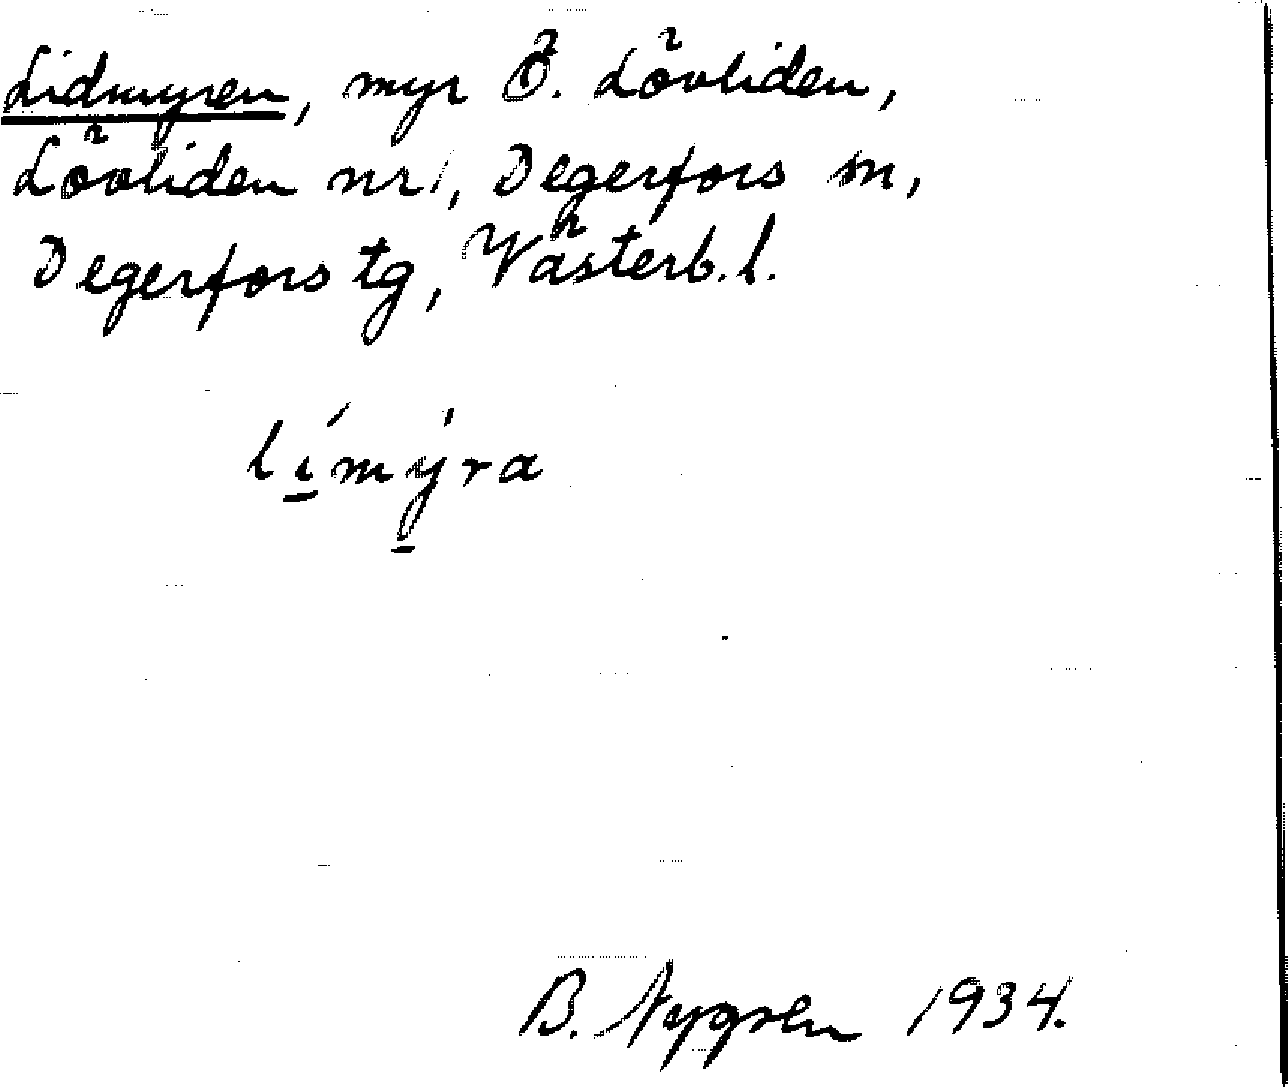 Lidmyren, myr Ö. Lövliden,
Lövliden nr 1, Degerfors sn,
Degerfors tg, Västerb. l.
límýra
B. Nygren 1934.